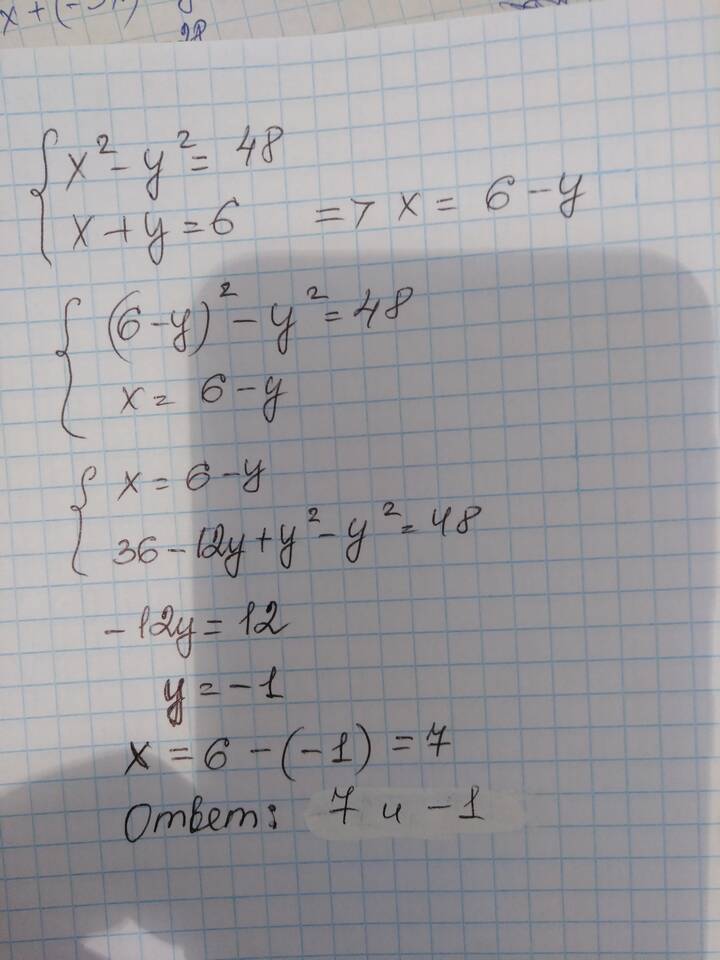 x + (-
28
x² - y² = 48
x + y = 6 => x = 6 - y
(6 - y)² - y² = 48
x = 6 - y
x = 6 - y
36 - 12y + y² - y² = 48
- 12y = 12
y = - 1
x = 6 - (-1) = 7
Ответ: 7 и -1